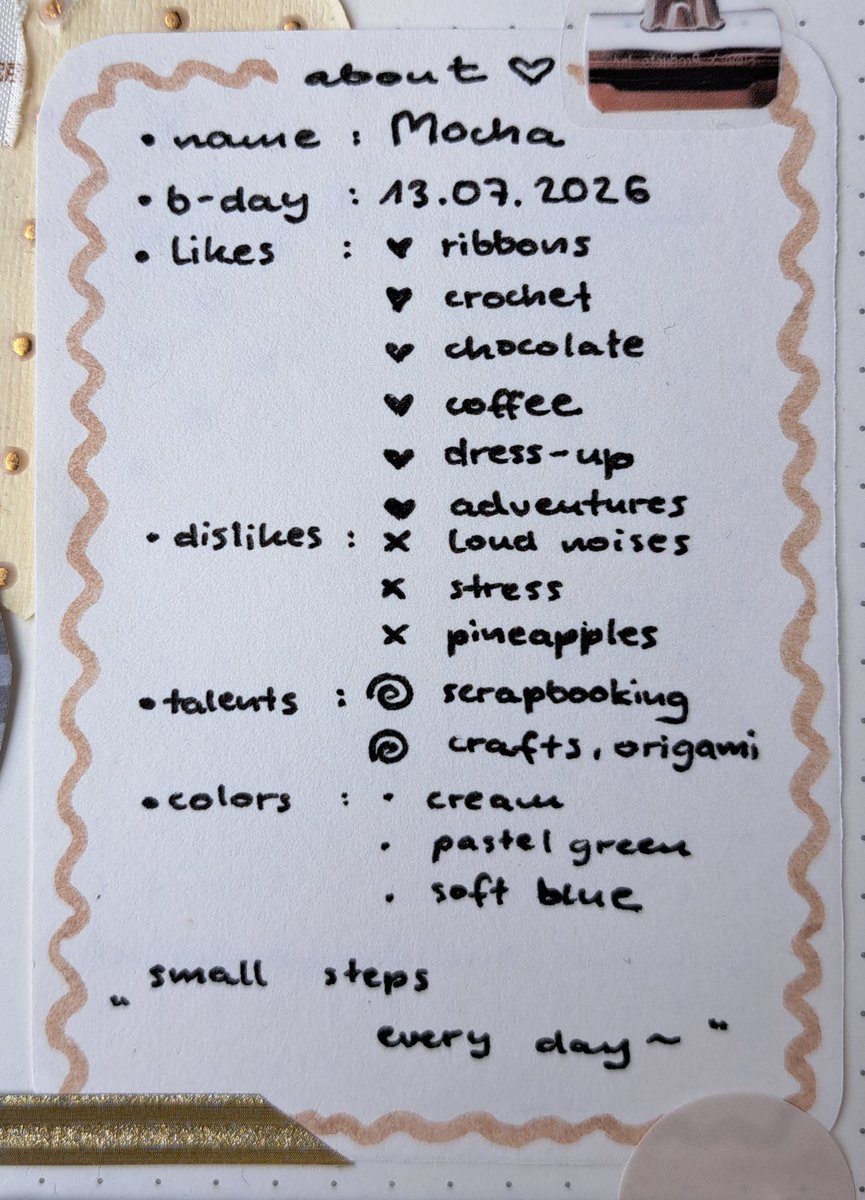 about ♡
• name : Mocha
• b-day : 13.07.2026
• likes : ♥ ribbons
♥ crochet
♥ chocolate
♥ coffee
♥ dress-up
♥ adventures
• dislikes : x loud noises
x stress
x pineapples
• talents : scrapbooking
crafts, origami
• colors : • cream
• pastel green
• soft blue
„ small steps
every day ~ "